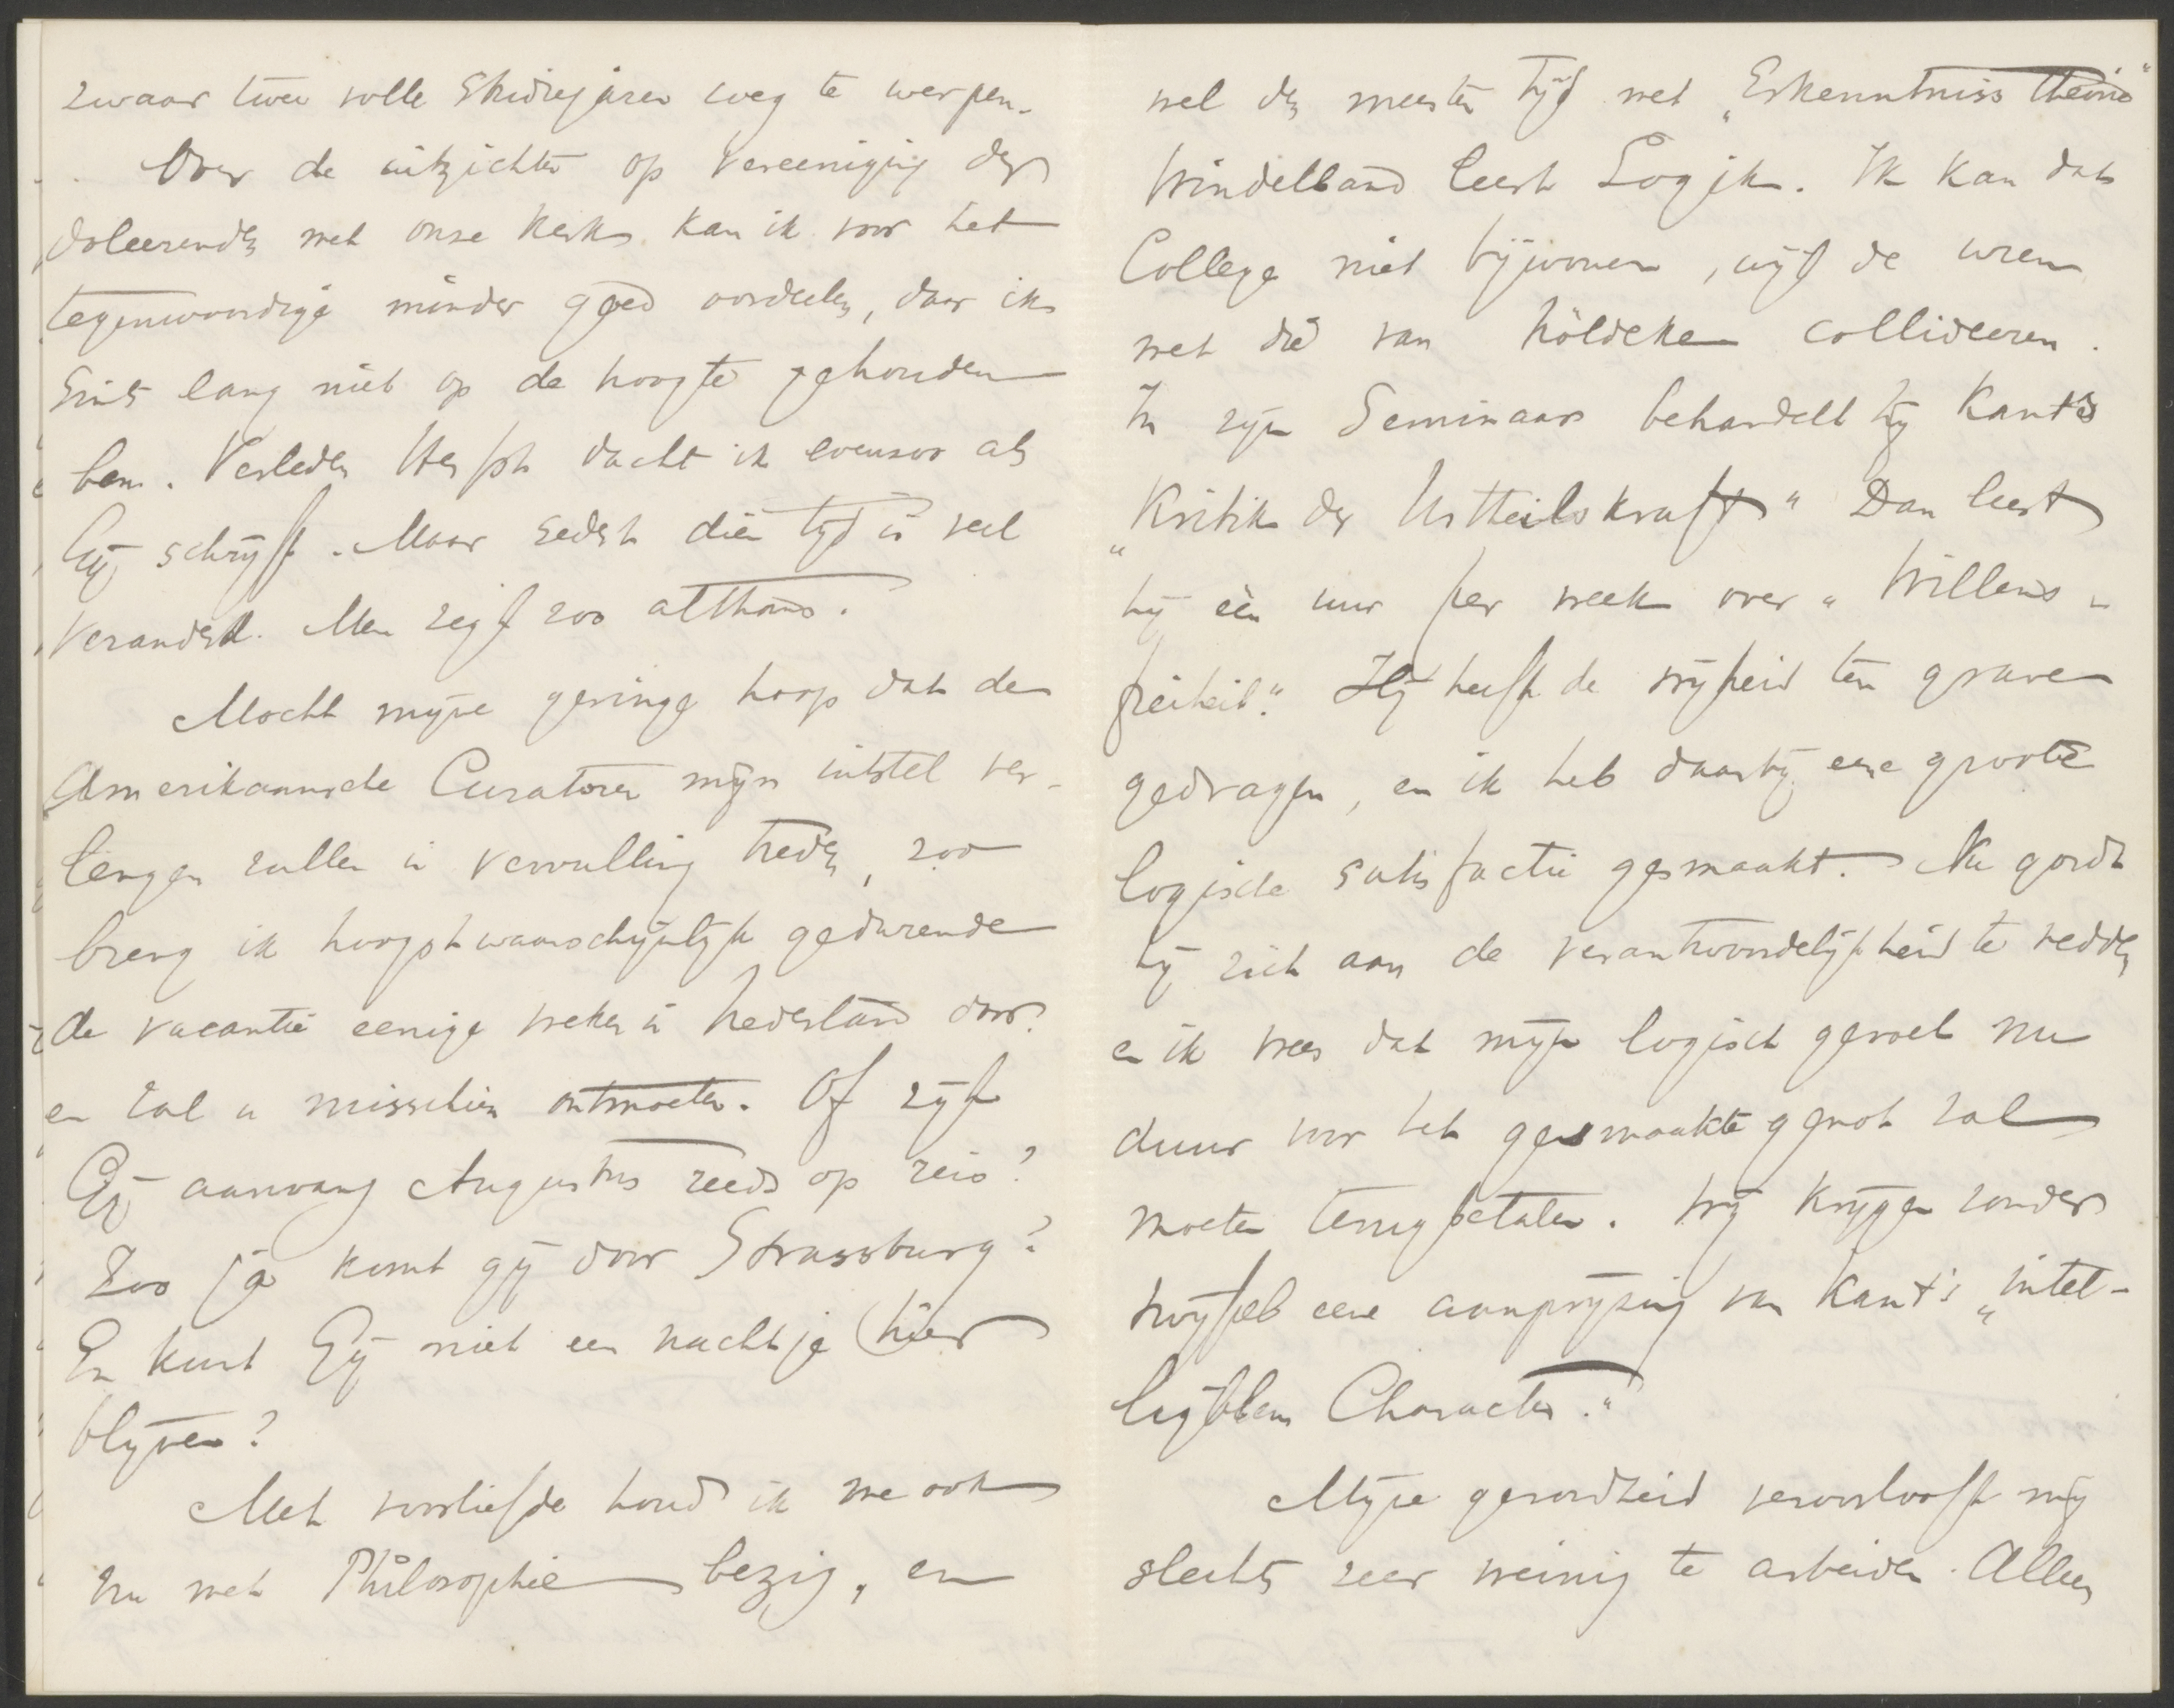 zwaar twee volle Studiejaren weg te werpen.
Over de uitzichten op vereeniging der
doleerenden met onze Kerk kan ik voor het
tegenwoordige minder goed oordeelen, daar ik
sints lang niet op de hoogte gehouden
ben. Verleden Herfst dacht ik evenzoo als
Gij schrijft. Maar sedert dien tijd is veel
veranderd. Men zegt zoo althans.
Mocht mijne geringe hoop dat de
Amerikaansche Curatoren mijn uitstel ver-
lengen zullen in vervulling treden, zoo
breng ik hoogstwaarschijnlijk gedurende
de vacantie eenige weken in Nederland door
en zal u misschien ontmoeten. Of zijt
Gij aanvang Augustus reeds op reis?
Zoo ja komt gij door Strassburg?
En kunt Gij niet een nachtje hier
blijven?
Met voorliefde houd ik me ook
nu met Philosophie bezig, en
wel den meesten tijd met „Erkenntniss theorie"
Windelband leest Logik. Ik kan dat
College niet bijwonen, wijl de uren
met die van Nöldeke collideeren.
In zijn Seminaar behandelt hij Kant's
„Kritik der Urtheilskraft" Dan leest
hij één uur per week over „Willens-
freiheit." Hij heeft de vrijheid ten grave
gedragen, en ik heb daarbij eene groote
logische satisfactie gesmaakt. Nu gordt
hij zich aan de verantwoordelijkheid te redden
en ik vrees dat mijn logisch gevoel nu
duur voor het gesmaakte genot zal
moeten terugbetalen. Wij krijgen zonder
twijfel eene aanprijzing van Kant's „intel-
ligiblem Character."
Mijne gezondheid veroorlooft mij
slechts zeer weinig te arbeiden. Alleen